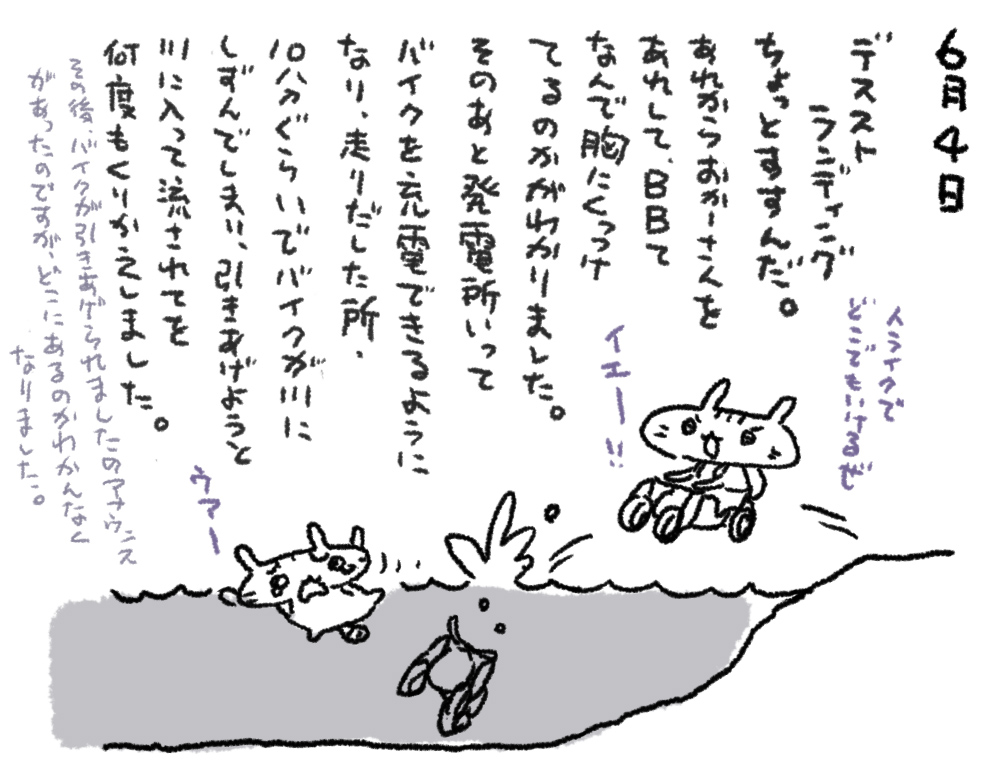 6月4日
デススト
ランディング
ちょっとすすんだ。
あれからおかーさんを
あれして、BBて
なんで胸にくっつけ
てるのかがわかりました。
そのあと発電所いって
バイクを充電できるように
なり、走りだした所、
10分ぐらいでバイクが川に
しずんでしまい、引きあげようと
川に入って流されてを
何度もくりかえしました。
その後、バイクが引きあげられましたのアナウンス
があったのですが、どこにあるのかわかんなく
なりました。
人ライクで
どこでもいけるぜ
イエー!!
ウアー